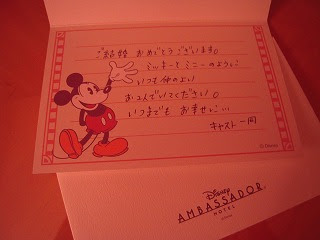 ご結婚おめでとうございます。
ミッキーとミニーのように
いつも仲のよい
お二人でいてください。
いつまでもお幸せに…
キャスト一同
© Disney
Disney
AMBASSADOR
HOTEL